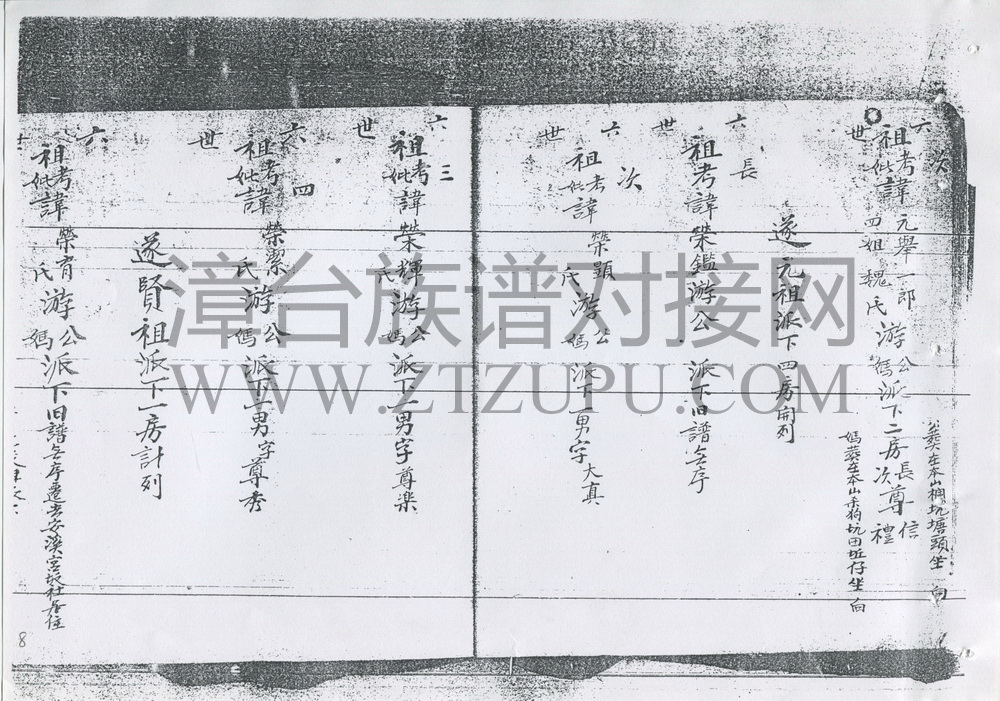 次
六世
祖考妣諱元舉一郎四姐魏氏游公媽派下二房長尊信次尊禮
公葬在本山柵坑塘頭坐 向
媽葬在本山 狗坑田坵仔坐 向
遂元祖派下四房開列
長
六世
祖考諱荣鑑游公 派下旧譜無序
次
六世
祖考妣諱榮顯 氏游公媽派下一男字大真
三
六世
祖考妣諱荣輝 氏游公媽派下一男字尊楽
四
六世
祖考妣諱荣潔 氏游公媽派下一男字尊秀
遂賢祖派下一房計列
六世
祖考妣諱榮育 氏游公媽派下旧譜無序遷去安溪宫 社居住
8
漳台族谱对接网
WWW.ZTZUPU.COM